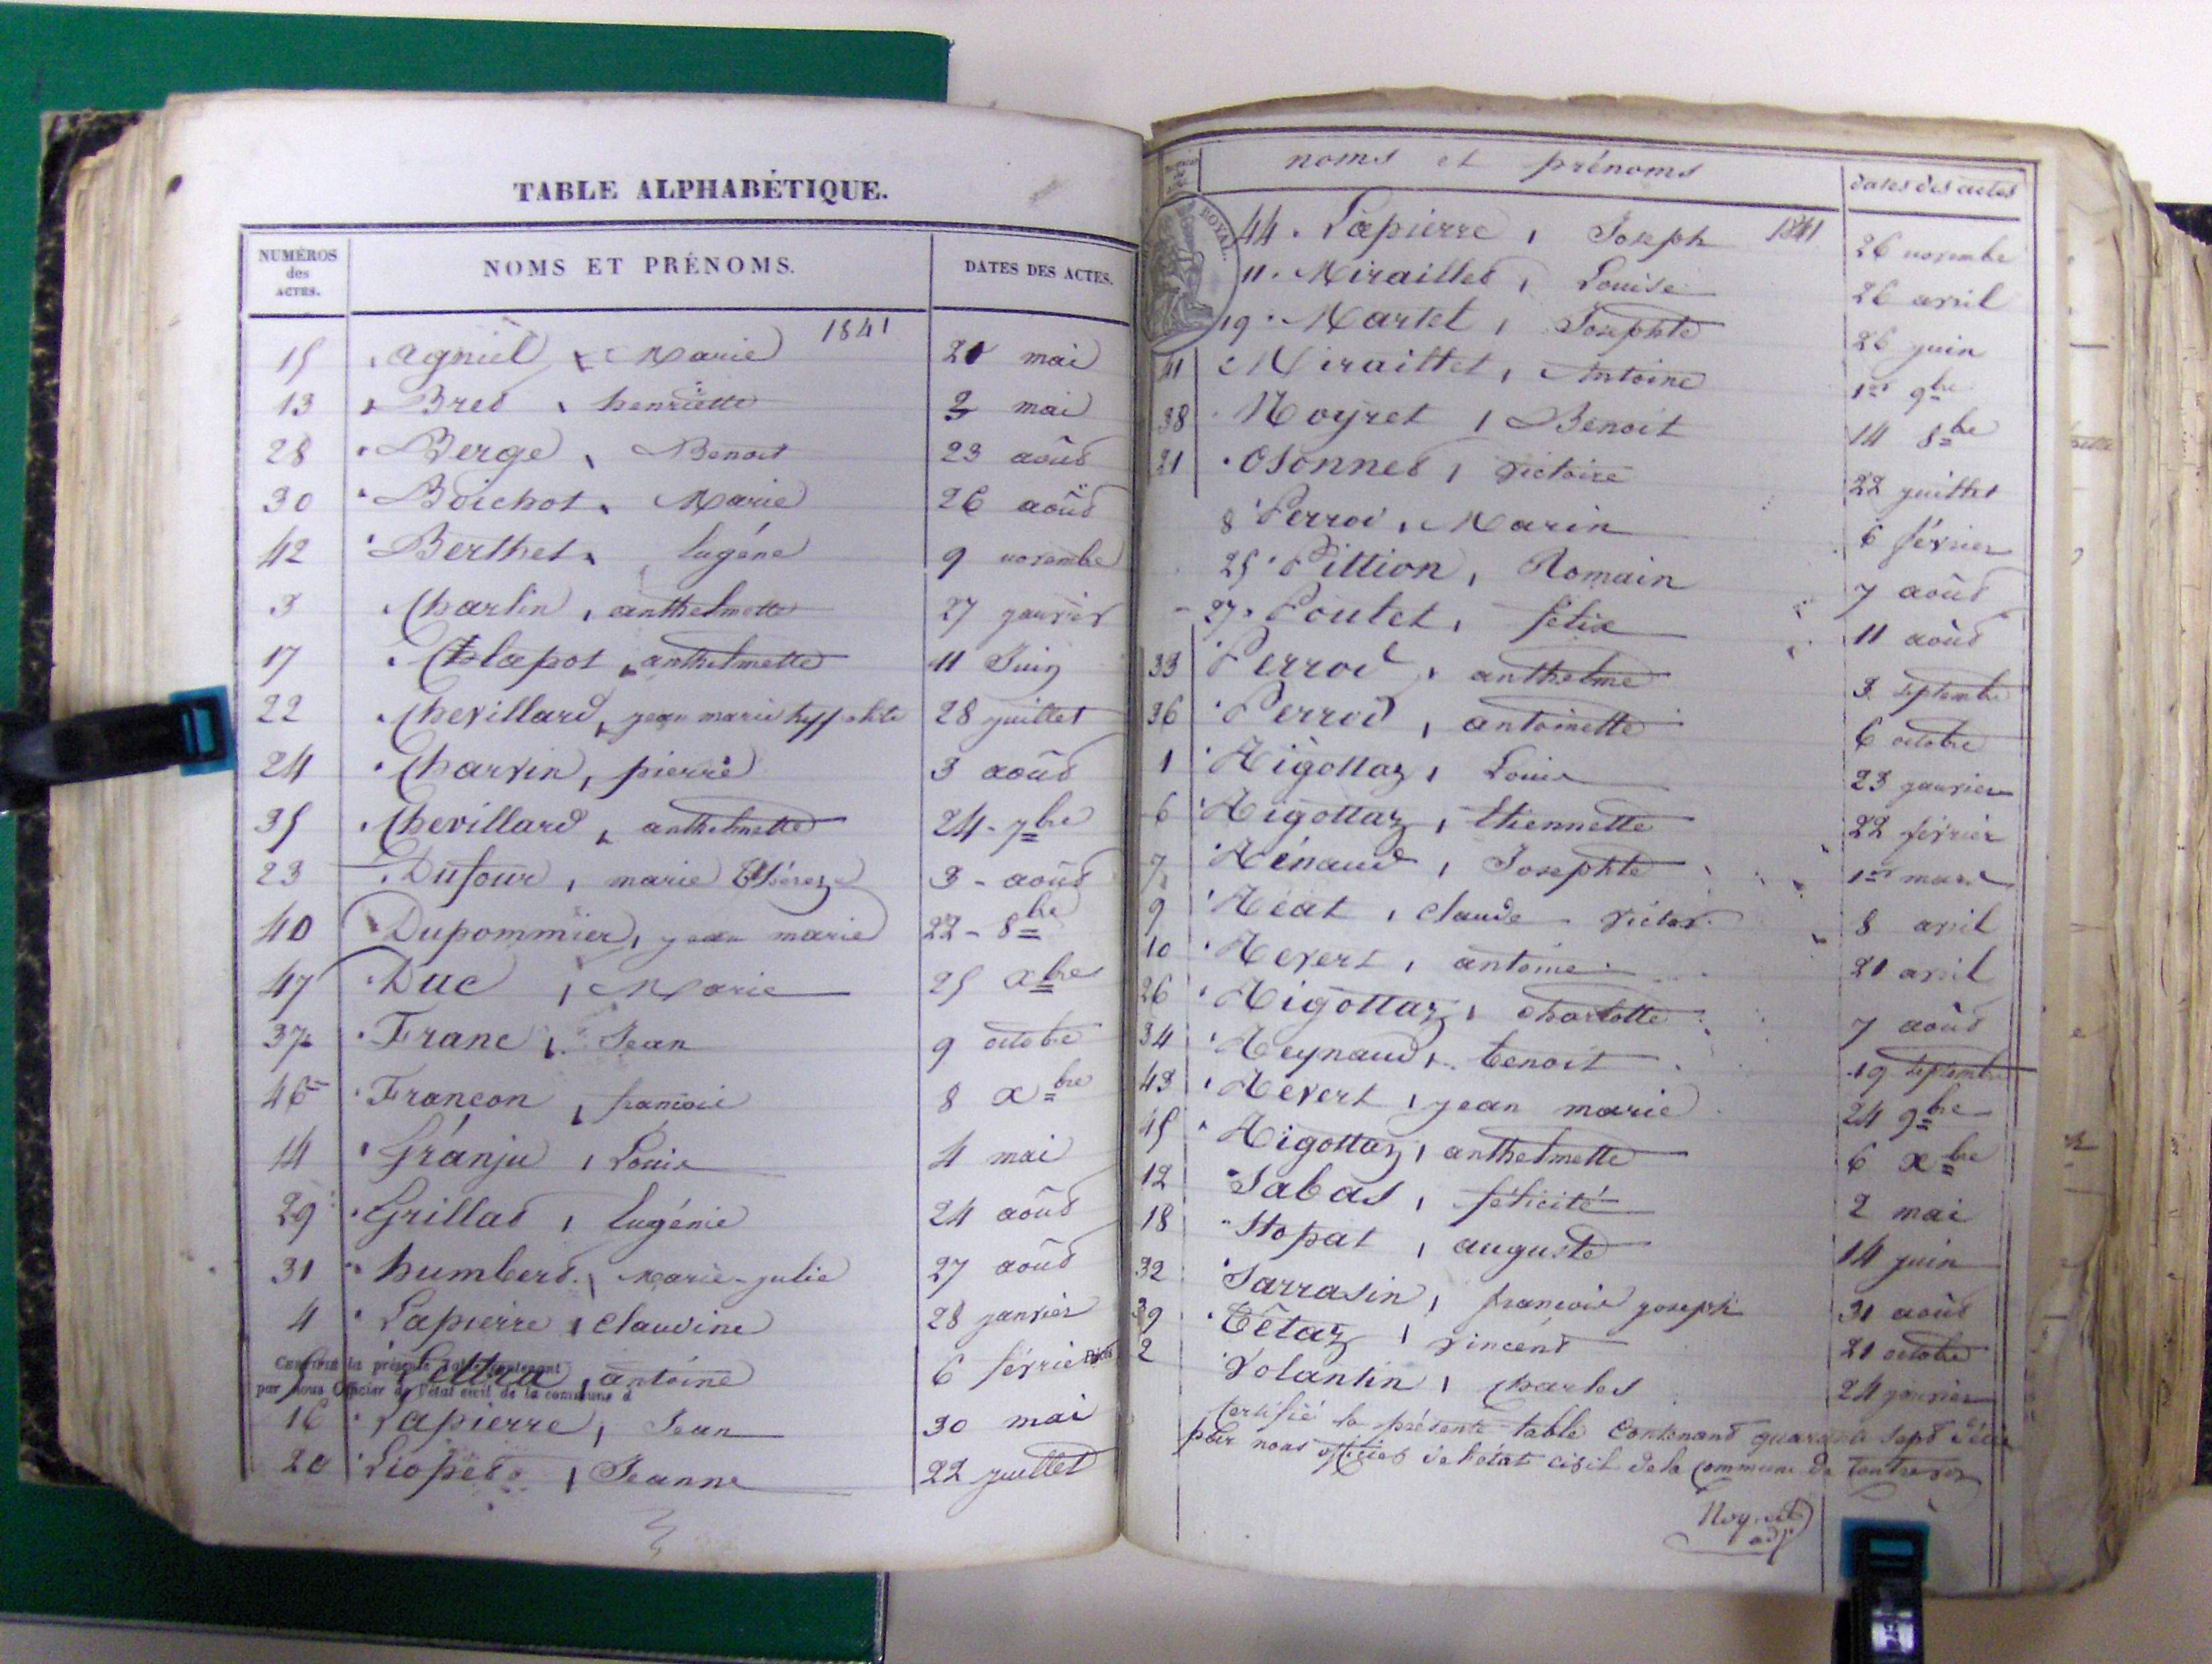 TABLE ALPHABÉTIQUE.
NUMÉROS des ACTES. NOMS ET PRÉNOMS. DATES DES ACTES.
1841
15 Agniel, Marie 20 mai
13 Bred, henriette 2 mai
28 Berge, Benoit 23 aoûd
30 Boichot, Marie 26 aoûd
42 Berthet, Eugéne 9 novembe
3 Charlin, anthelmette 27 janvier
17 Chapot, anthelmette 11 Juin
22 Chevillard, jean marie hyppolite 28 juillet
24 Charvin, pierre 3 aoûd
35 Chevillard, anthelmette 24 - 7bre
23 Dufour, marie Thérèze 3 - aoûd
40 Dupommier, jean marie 22 - 8bre
47 Duc, Marie 25 xbre
37 Franc, Jean 9 octobre
46 Francon, francois 8 xbre
14 Gránju, Louis 4 mai
29 Grillad, Eugénie 24 aoûd
31 humberd, Marie-julie 27 aoûd
4 Lapierre, Claudine 28 janvier
Certifié la présente Table contenant
5 antoine 6 février
par nous Officier de l'état civil de la commune d
16 Lapierre, Jean 30 mai
20 Lioped, Jeanne 22 juillet
noms et prénoms dates des actes
ROYAL.
44 Lapierre, Joseph 1841 26 novembe
11 Mirailled, Louise 26 avril
19 Martel, Josephte 26 juin
41 Miraillet, Antoine 1er 9bre
38 Noyret, Benoit 14 8bre
21 Osonned, victoire 22 juillet
8 Perrod, Marin 6 février
25 Pittion, Romain 7 aoûd
27 Poulet, félix 11 aoûd
33 Perrod, anthelme 3 septembre
36 Perrod, antoinette 6 octobre
1 Rigottaz, Louis 23 janvier
6 Rigottaz, Etiennette 22 février
7 Rénaud, Josephte 1er mars
9 Réat, claude victor 8 avril
10 Revert, antoine 21 avril
26 Rigottaz, charlotte 7 aoûd
34 Reynaud, benoit 19 septembre
43 Revert, jean marie 24 9bre
45 Rigottaz, anthelmette 6 xbre
12 Sabas, félicité 2 mai
18 Stopat, auguste 14 juin
32 Sarrasin, francois joseph 31 aoûd
39 Tétaz, vincend 21 octobre
2 Volantin, Charles 24 janvier
Certifié la présente table contenand quarante sept
par nous officier de l'état civil de la commune de
Noyret
adj